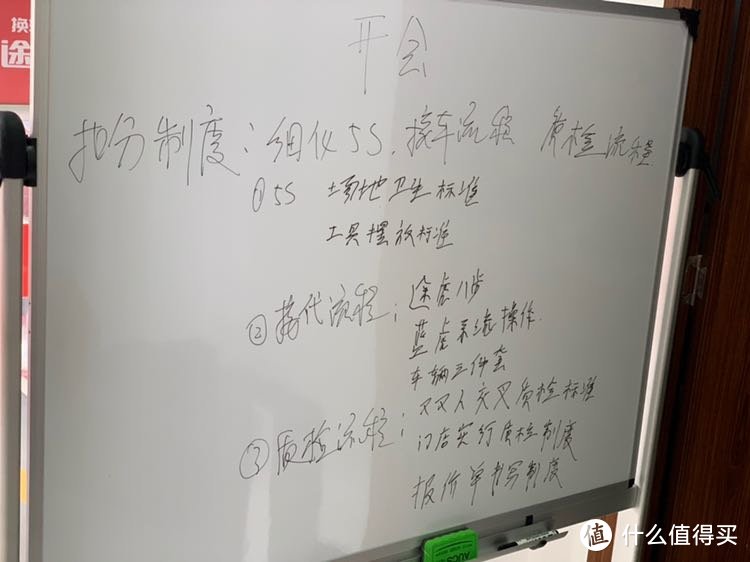 换
途
开会
扣分制度：细化5S、接车流程 质检流程
①5S 场地卫生标准
工具摆放标准
②接代流程：途虎八步
蓝虎系统操作.
车辆三件套
③质检流程：双人交叉质检标准
门店实行质检制度
报价单书写制度
AUCS
值 什么值得买